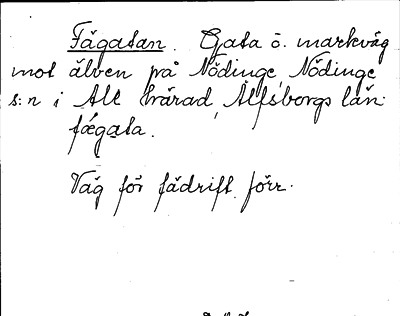 Fägatan. Gata o. markväg
mot älven på Nödinge, Nödinge
s:n i Ale härad, Älfsborgs län.
fǽgata.
Väg för fädrift förr.